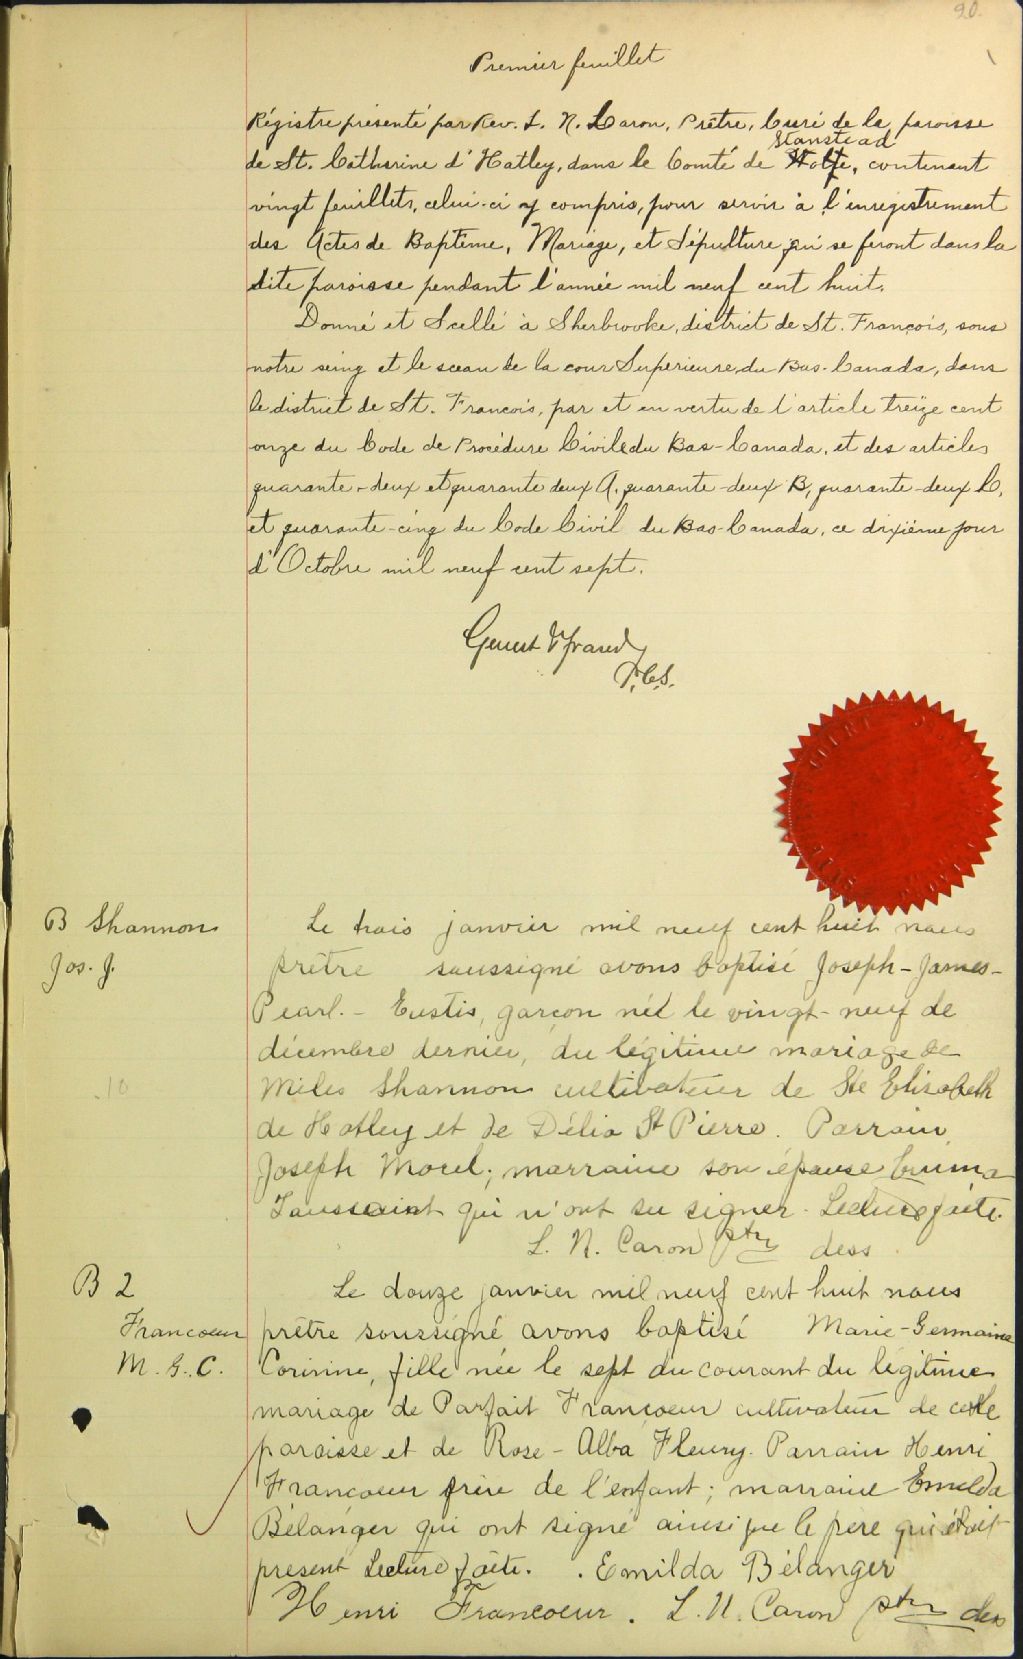 90.
Premier feuillet
Régistre présenté par Rev. L. N. Caron, Prêtre, Curé de la paroisse
Stanstead
de St. Catherine d'Hatley, dans le Comté de Wolfe, contenant
vingt feuillets, celui-ci y compris, pour servir à l'enregistrement
des Actes de Baptême, Mariage, et Sépulture qui se feront dans la
dite paroisse pendant l'année mil neuf cent huit.
Donné et Scellé à Sherbrooke, district de St. François, sous
notre seing et le sceau de la cour Superieure du Bas-Canada, dans
le district de St. François, par et en vertu de l'article treize cent
onze du Code de Procédure Civile du Bas-Canada, et des articles
quarante-deux et quarante deux A, quarante-deux B, quarante-deux C,
et quarante-cinq du Code Civil du Bas-Canada, ce dixième jour
d'Octobre mil neuf cent sept.
P.C.S.
B Shannon
Jos. J.
10
Le trois janvier mil neuf cent huit nous
prêtre soussigné avons baptisé Joseph-James-
Pearl.- Eustis, garçon né le vingt-neuf de
décembre dernier, du légitime mariage de
Miles Shannon cultivateur de Ste Elisabeth
de Hatley et de Délia St Pierre. Parrain,
Joseph Morel; marraine son épouse Emma
Toussaint qui n'ont su signer. Lecture faite.
L. N. Caron ptre dess
B 2
Francoeur
M. G. C.
Le douze janvier mil neuf cent huit nous
prêtre soussigné avons baptisé Marie-Germaine
Corinne, fille née le sept du courant du légitime
mariage de Parfait Francoeur cultivateur de cette
paroisse et de Rose-Alba Fleury. Parrain Henri
Francoeur frère de l'enfant; marraine Emelda
Bélanger qui ont signé ainsi que le père qui était
présent Lecture faite. . Emilda Bélanger
Henri Francoeur. L. N. Caron ptre dess